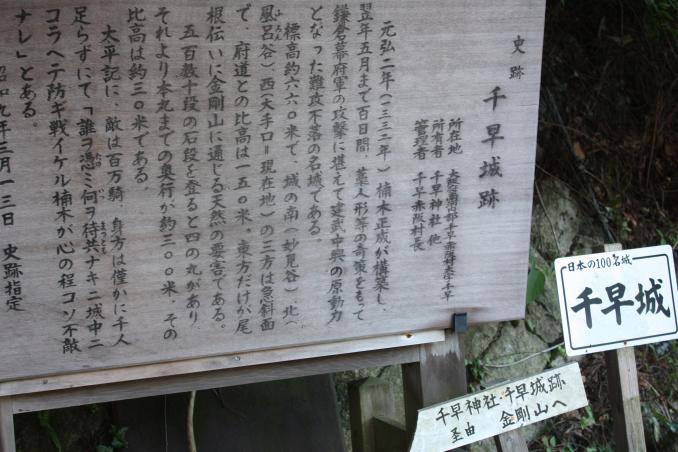 史跡 千早城跡
所在地 大阪府南河内郡千早赤阪村大字千早
所有者 千早神社他
管理者 千早赤阪村長
元弘二年(一三三二年)楠木正成が構築し、
翌年五月まで百日間、藁人形等の奇策をもって
鎌倉幕府軍の攻撃に堪えて建武中興の原動力
となった難攻不落の名城である。
標高約六六〇米で、城の南(妙見谷)、北(
風呂谷)西(大手口=現在地)の三方は急斜面
で、府道との比高は一五〇米。東方だけが尾
根伝いに金剛山に通じる天然の要害である。
五百数十段の石段を登ると四の丸があり
それより本丸までの奥行が約三〇〇米、その
比高は約三〇米である。
太平記に、敵は百万騎、身方は僅かに千人
足らずにて「誰ヲ憑ミ何ヲ待共ナキニ城中ニ
コラヘテ防ギ戦イケル楠木が心の程コソ不敵
ナレ」とある。
昭和九年三月一三日 史跡指定
日本の100名城
千早城
千早神社・千早城跡
至由 金剛山へ